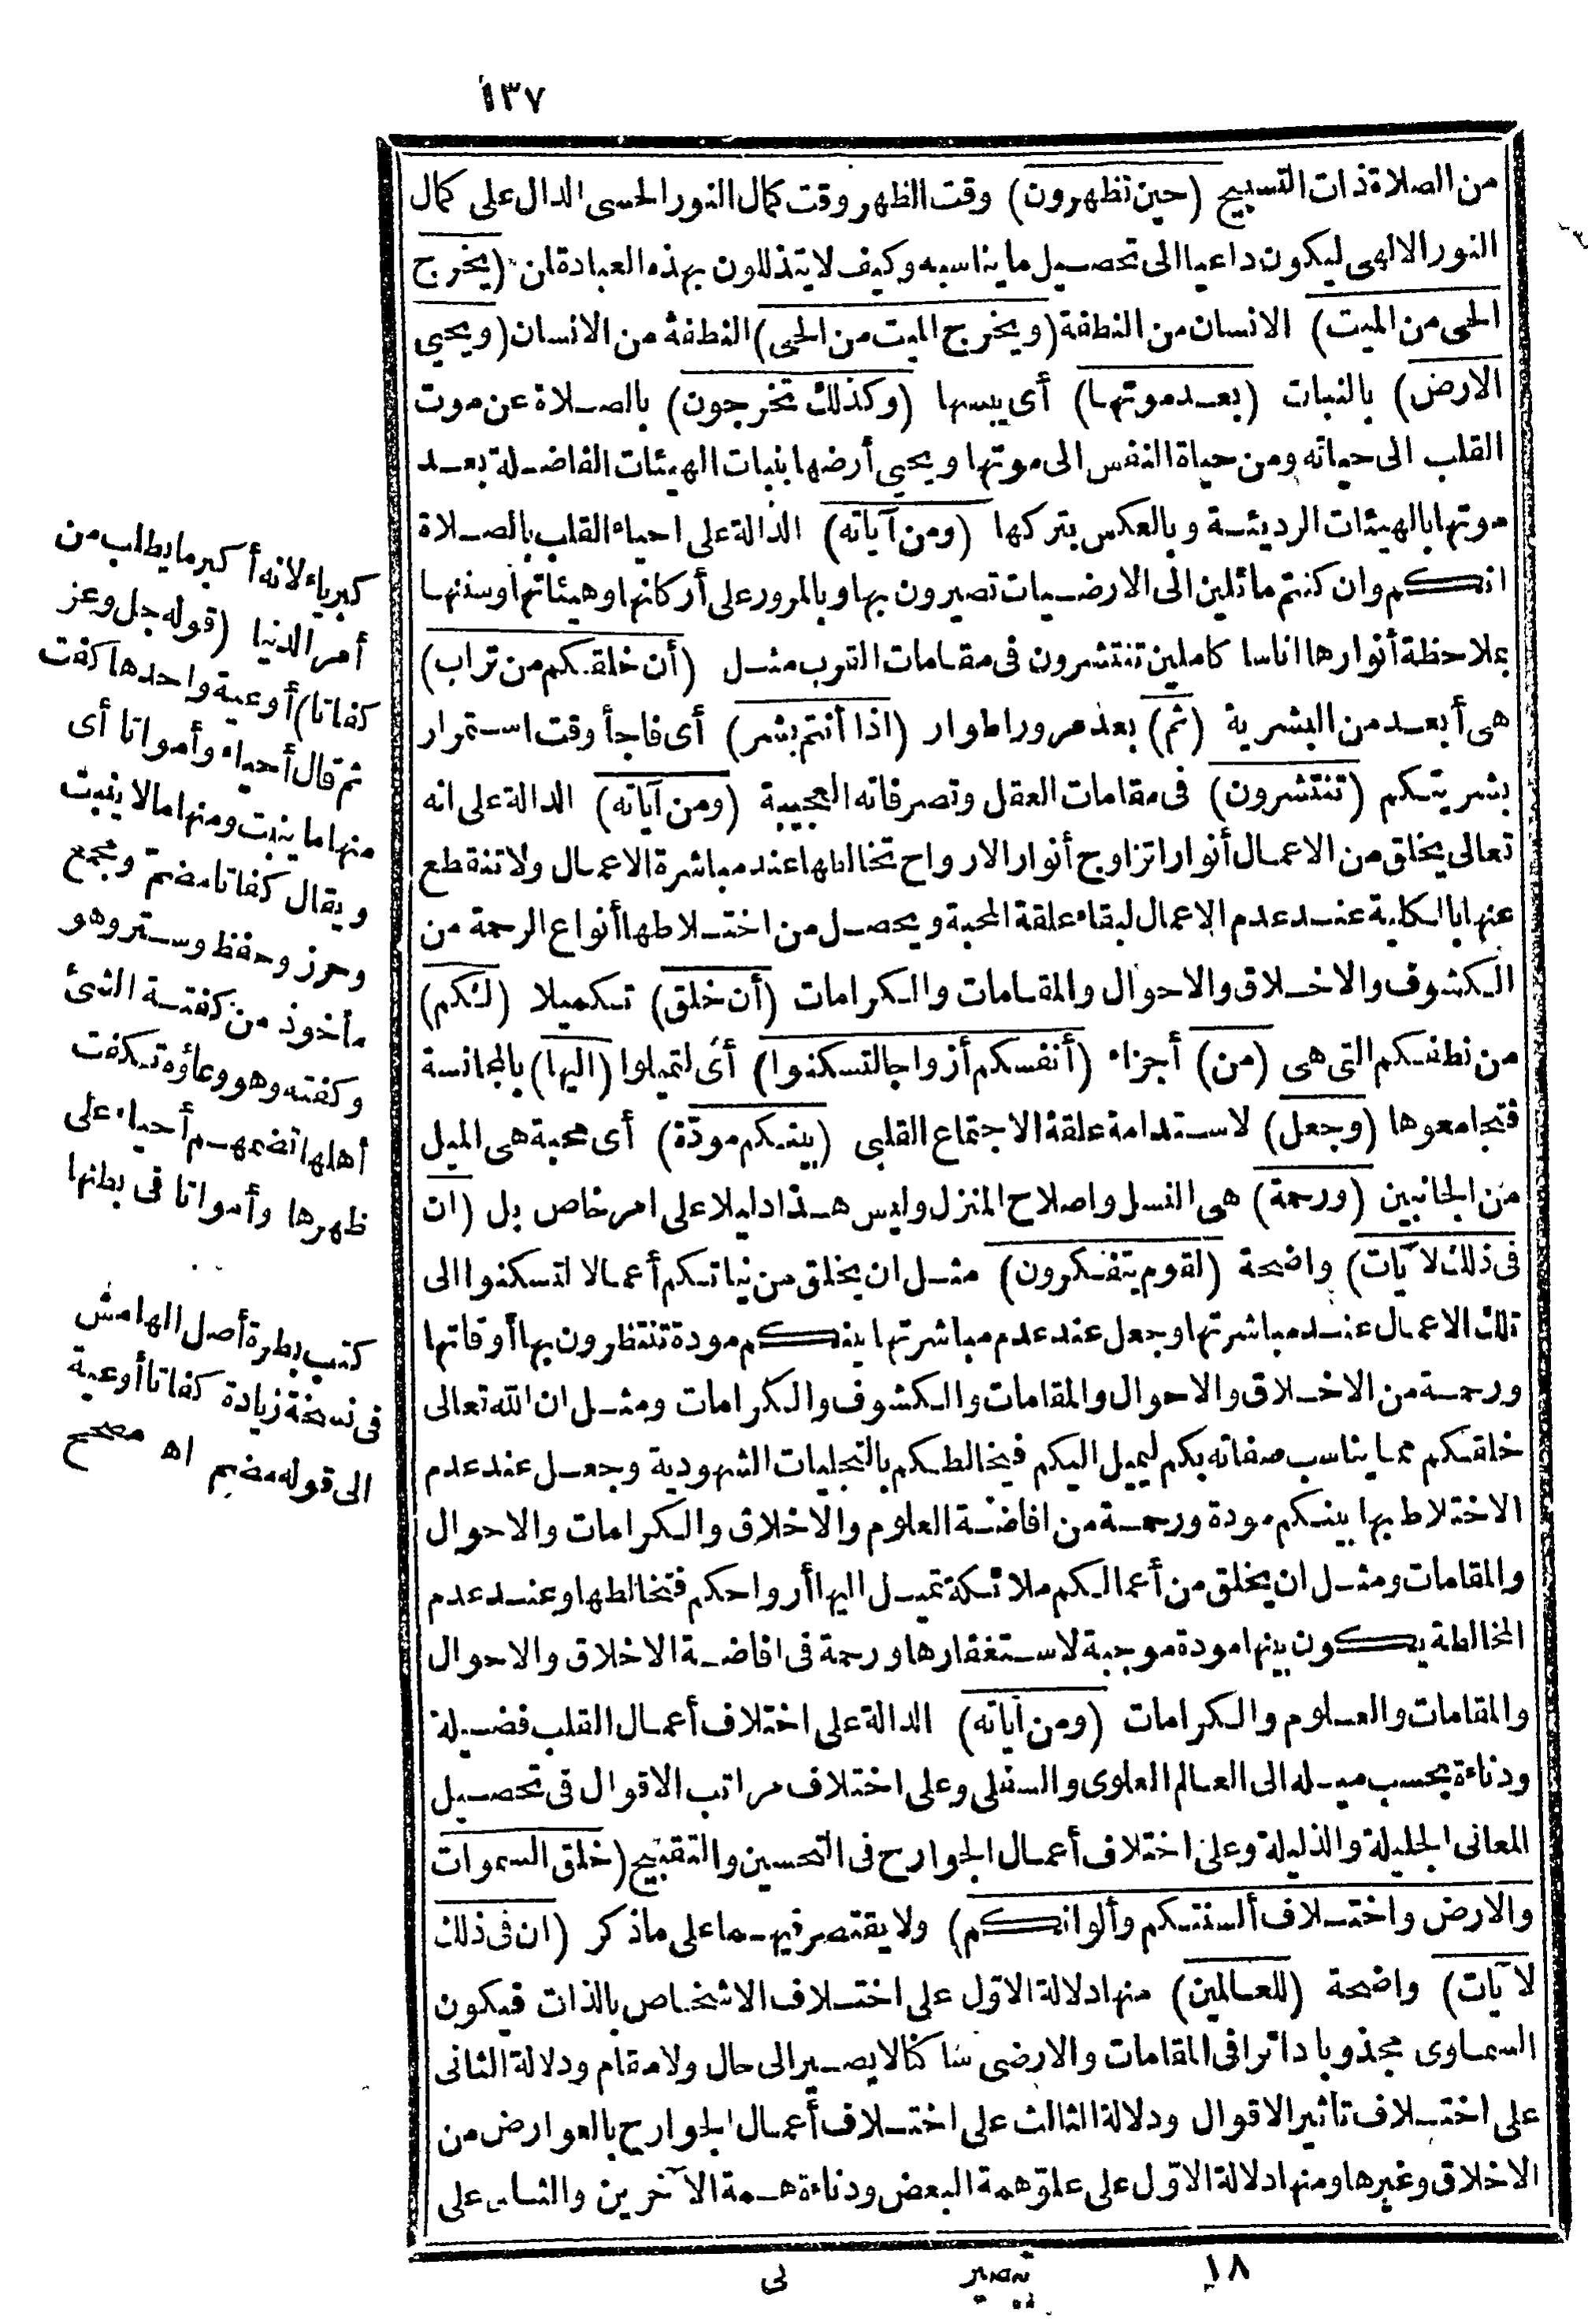 ١٣٧
من الصلاة ذات التسبيح (حين تظهرون) وقت الظهر وقت كمال النور الحسى الدال على كمال
النور الالهى ليكون داعيا الى تحصيل ما يناسبه وكيف لا يتذللون بهذه العبادة لمن (يخرج
الحى من الميت) الانسان من النطفة (ويخرج الميت من الحى) النطفة من الانسان (ويحيى
الارض) بالنبات (بعد موتها) أى يبسها (وكذلك تخرجون) بالصلاة عن موت
القلب الى حياته ومن حياة النفس الى موتها ويحيى أرضها بنبات الهيئات الفاضلة بعد
موتها بالهيئات الرديئة وبالعكس بتركها (ومن آياته) الدالة على احياء القلب بالصلاة
انكم وان كنتم مائلين الى الارضيات تصيرون بها وبالمرور على أركانها وهيئاتها وسننها
بملاحظة أنوارها اناسا كاملين تنتشرون فى مقامات القرب مثل (أن خلقكم من تراب)
هى أبعد من البشرية (ثم) بعد مرور اطوار (اذا أنتم بشر) أى فاجأ وقت استمرار
بشريتكم (تنتشرون) فى مقامات العقل وتصرفاته العجيبة (ومن آياته) الدالة على انه
تعالى يخلق من الاعمال أنوارا تزاوج أنوار الارواح تخالطها عند مباشرة الاعمال ولا تنقطع
عنها بالكلية عند عدم الاعمال لبقاء علقة المحبة ويحصل من اختلاطها أنواع الرحمة من
الكشوف والاخلاق والاحوال والمقامات والكرامات (أن خلق) تكميلا (لكم)
من نطفكم التى هى (من) أجزاء (أنفسكم أزواجا لتسكنوا) أى لتميلوا (اليها) بالمجانسة
فتجامعوها (وجعل) لاستدامة علقة الاجتماع القلبى (بينكم مودّة) أى محبة هى الميل
من الجانبين (ورحمة) هى النسل واصلاح المنزل وليس هذا دليلا على امر خاص بل (ان
فى ذلك لآيات) واضحة (لقوم يتفكرون) مثل ان يخلق من نياتكم أعمالا لتسكنوا الى
تلك الاعمال عند مباشرتها وجعل عند عدم مباشرتها بينكم مودة تنتظرون بها أوقاتها
ورحمة من الاخلاق والاحوال والمقامات والكشوف والكرامات ومثل ان الله تعالى
خلقكم مما يناسب صفاته بكم ليميل اليكم فيخالطكم بالتجليات الشهودية وجعل عند عدم
الاختلاط بها بينكم مودة ورحمة من افاضة العلوم والاخلاق والكرامات والاحوال
والمقامات ومثل ان يخلق من أعمالكم ملائكة تميل اليها أرواحكم فتخالطها وعند عدم
المخالطة يكون بينها مودة موجبة لاستغفارها ورحمة فى افاضة الاخلاق والاحوال
والمقامات والعلوم والكرامات (ومن آياته) الدالة على اختلاف أعمال القلب فضيلة
ودناءة بحسب ميله الى العالم العلوى والسفلى وعلى اختلاف مراتب الاقوال فى تحصيل
المعانى الجليلة والذليلة وعلى اختلاف أعمال الجوارح فى التحسين والتقبيح (خلق السموات
والارض واختلاف ألسنتكم وألوانكم) ولا يقتصر فيهما على ما ذكر (ان فى ذلك
لآيات) واضحة (للعالمين) منها دلالة الاوّل على اختلاف الاشخاص بالذات فيكون
السماوى مجذوبا دائرا فى المقامات والارضى ساكنا لا يصير الى حال ولا مقام ودلالة الثانى
على اختلاف تأثير الاقوال ودلالة الثالث على اختلاف أعمال الجوارح بالعوارض من
الاخلاق وغيرها ومنها دلالة الاوّل على علوّ همة البعض ودناءة همة الآخرين والثانى على
١٨ تبصير نى
كبرياء لانه أكبر ما يطلب من
أمر الدنيا (قوله جل وعز
كفاتا) أوعية واحدها كفت
ثم قال أحياء وأمواتا أى
منها ما ينبت ومنها ما لا ينبت
ويقال كفاتا مضمّ ومجمع
وحرز وحفظ وستر وهو
مأخوذ من كفتة الشئ
وكفته وهو وعاؤه تكفت
أهلها تضمهم أحياء على
ظهرها وأمواتا فى بطنها
كتب بطرة أصل الهامش
فى نسخة زيادة كفاتا أوعية
الى قوله مضم اه مصحح